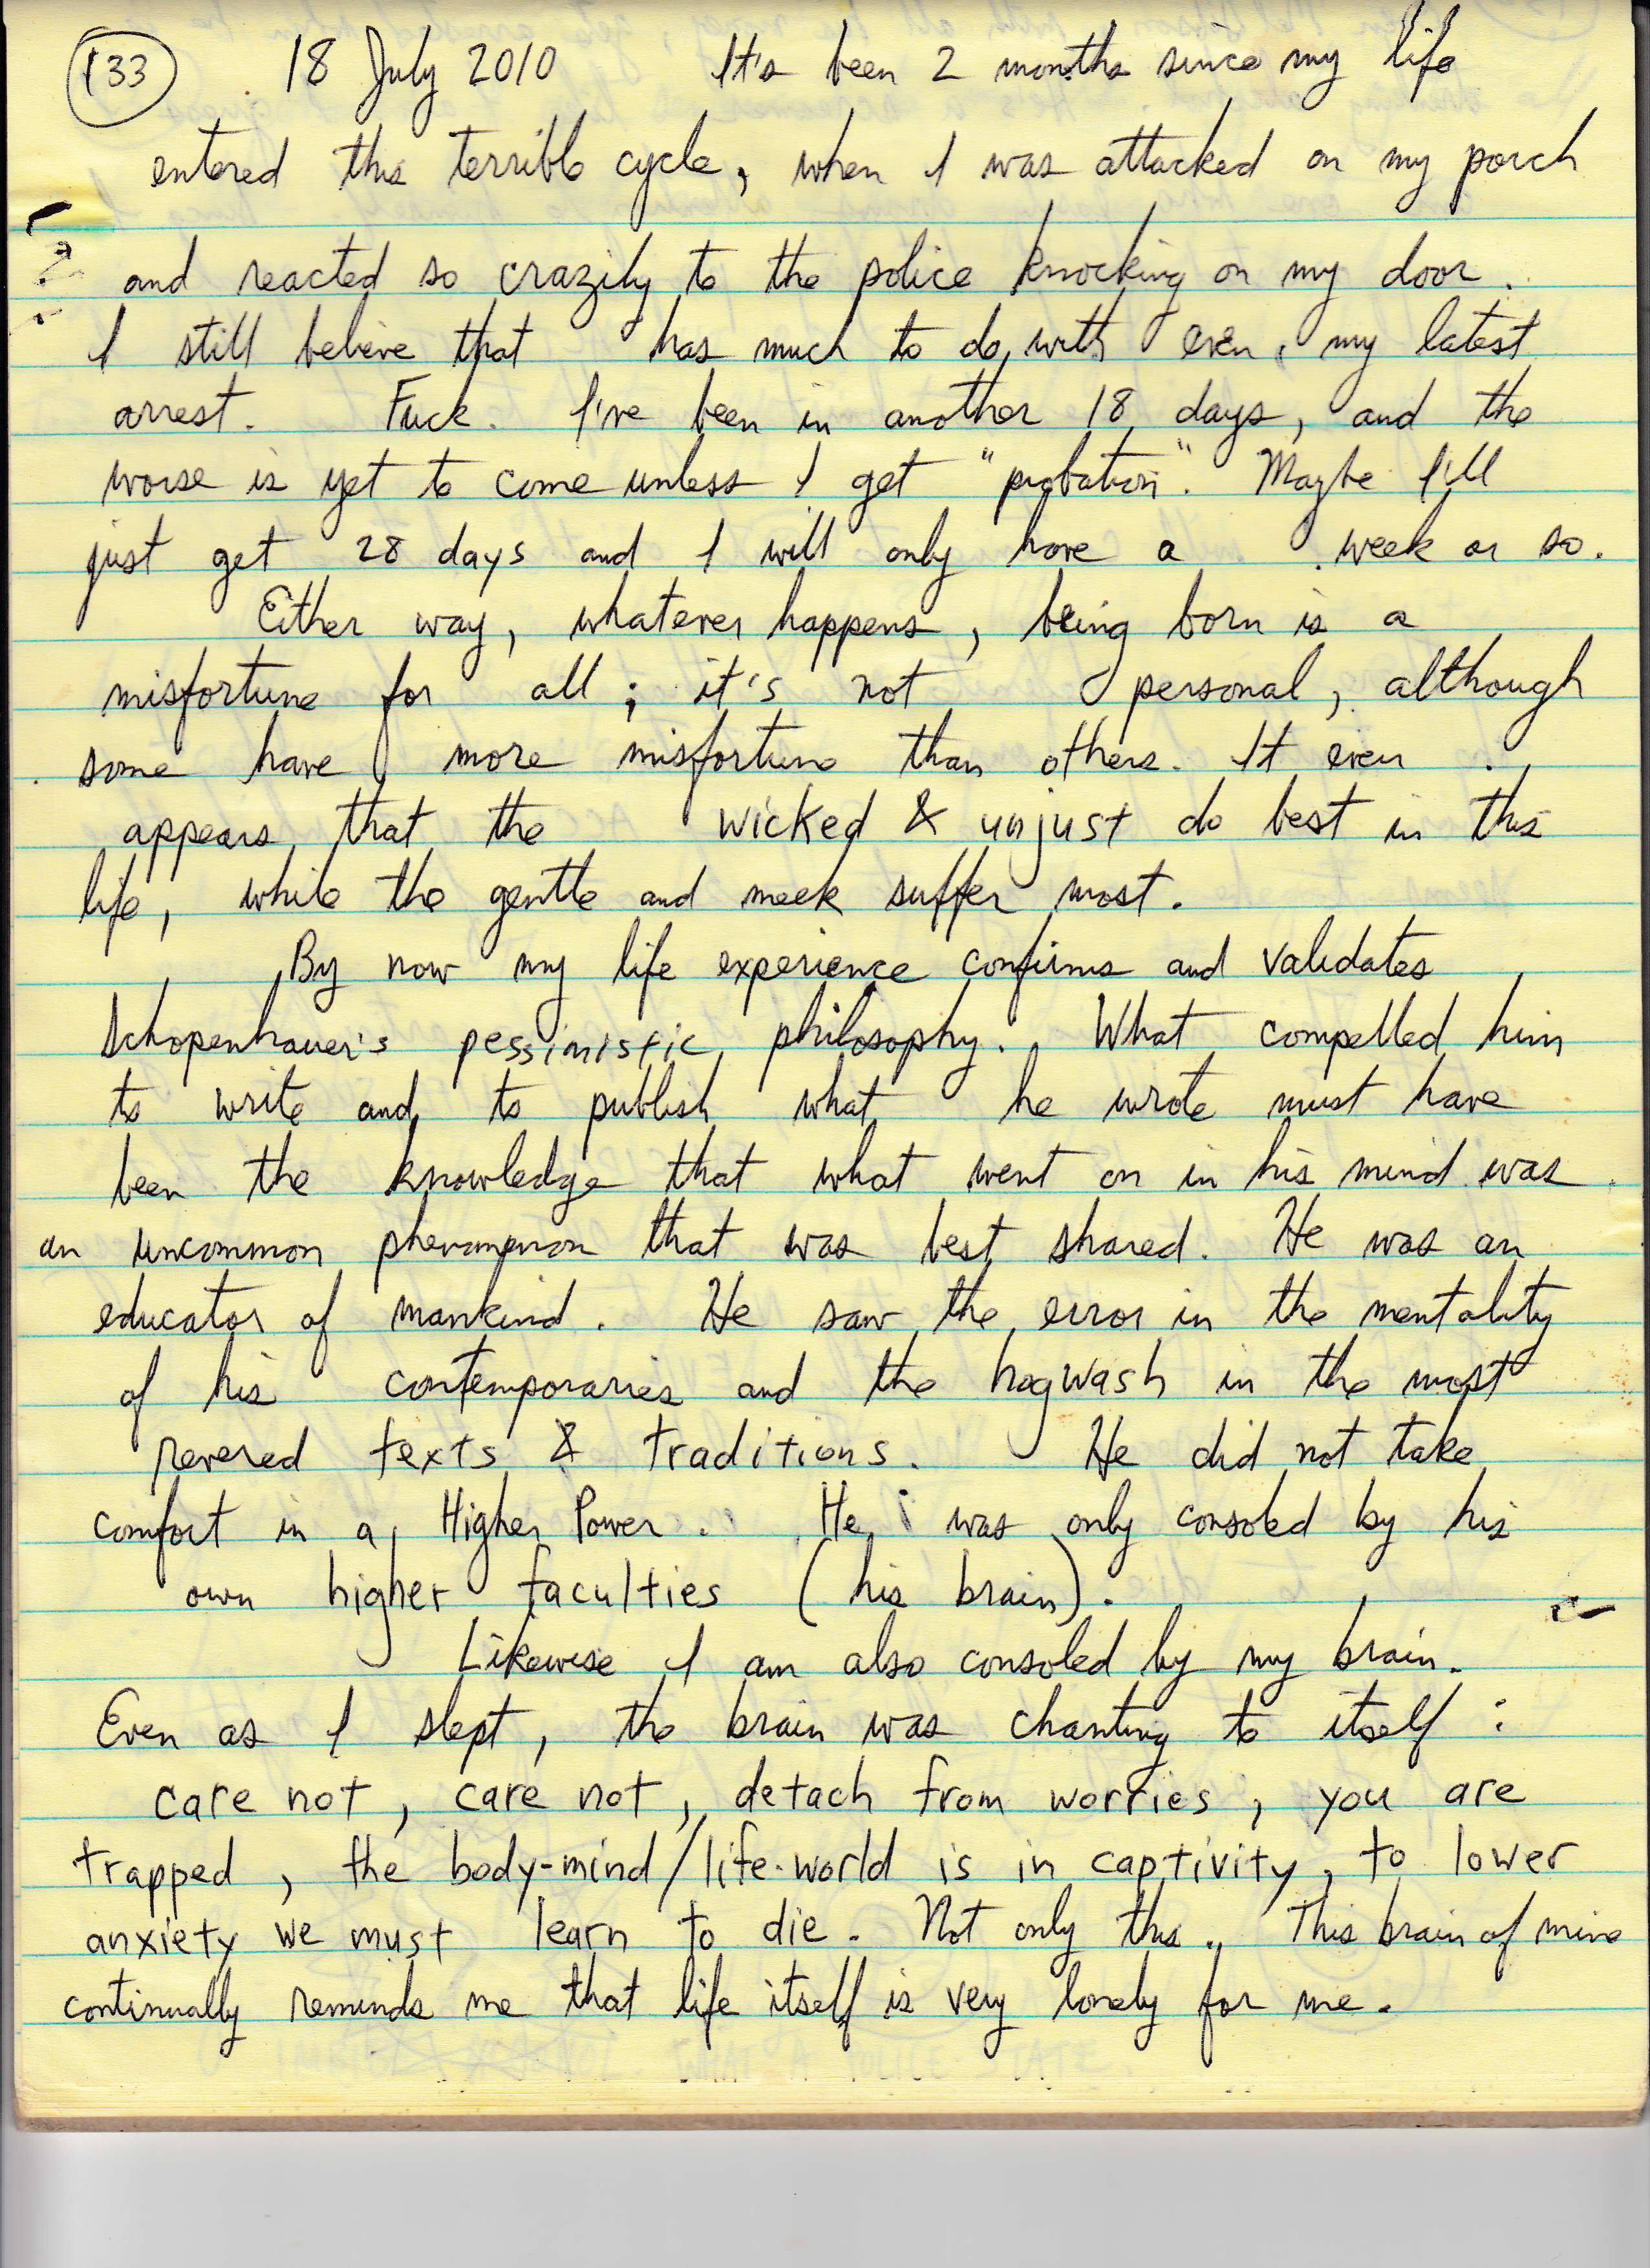 133 18 July 2010 It's been 2 months since my life
entered this terrible cycle, when I was attacked on my porch
and reacted so crazily to the police knocking on my door.
I still believe that has much to do with even my latest
arrest. Fuck. I've been in another 18 days, and the
worse is yet to come unless I get "probation". Maybe I'll
just get 28 days and I will only have a week or so.
Either way, whatever happens, being born is a
misfortune for all; it's not personal, although
some have more misfortune than others. It even
appears that the wicked & unjust do best in this
life, while the gentle and meek suffer most.
By now my life experience confirms and validates
Schopenhauer's pessimistic philosophy. What compelled him
to write and to publish what he wrote must have
been the knowledge that what went on in his mind was
an uncommon phenomenon that was best shared. He was an
educator of mankind. He saw the error in the mentality
of his contemporaries and the hogwash in the most
revered texts & traditions. He did not take
comfort in a Higher Power. He was only consoled by his
own higher faculties (his brain).
Likewise I am also consoled by my brain.
Even as I slept, the brain was chanting to itself:
care not, care not, detach from worries, you are
trapped, the body-mind/life-world is in captivity, to lower
anxiety we must learn to die. Not only this. This brain of mine
continually reminds me that life itself is very lonely for me.